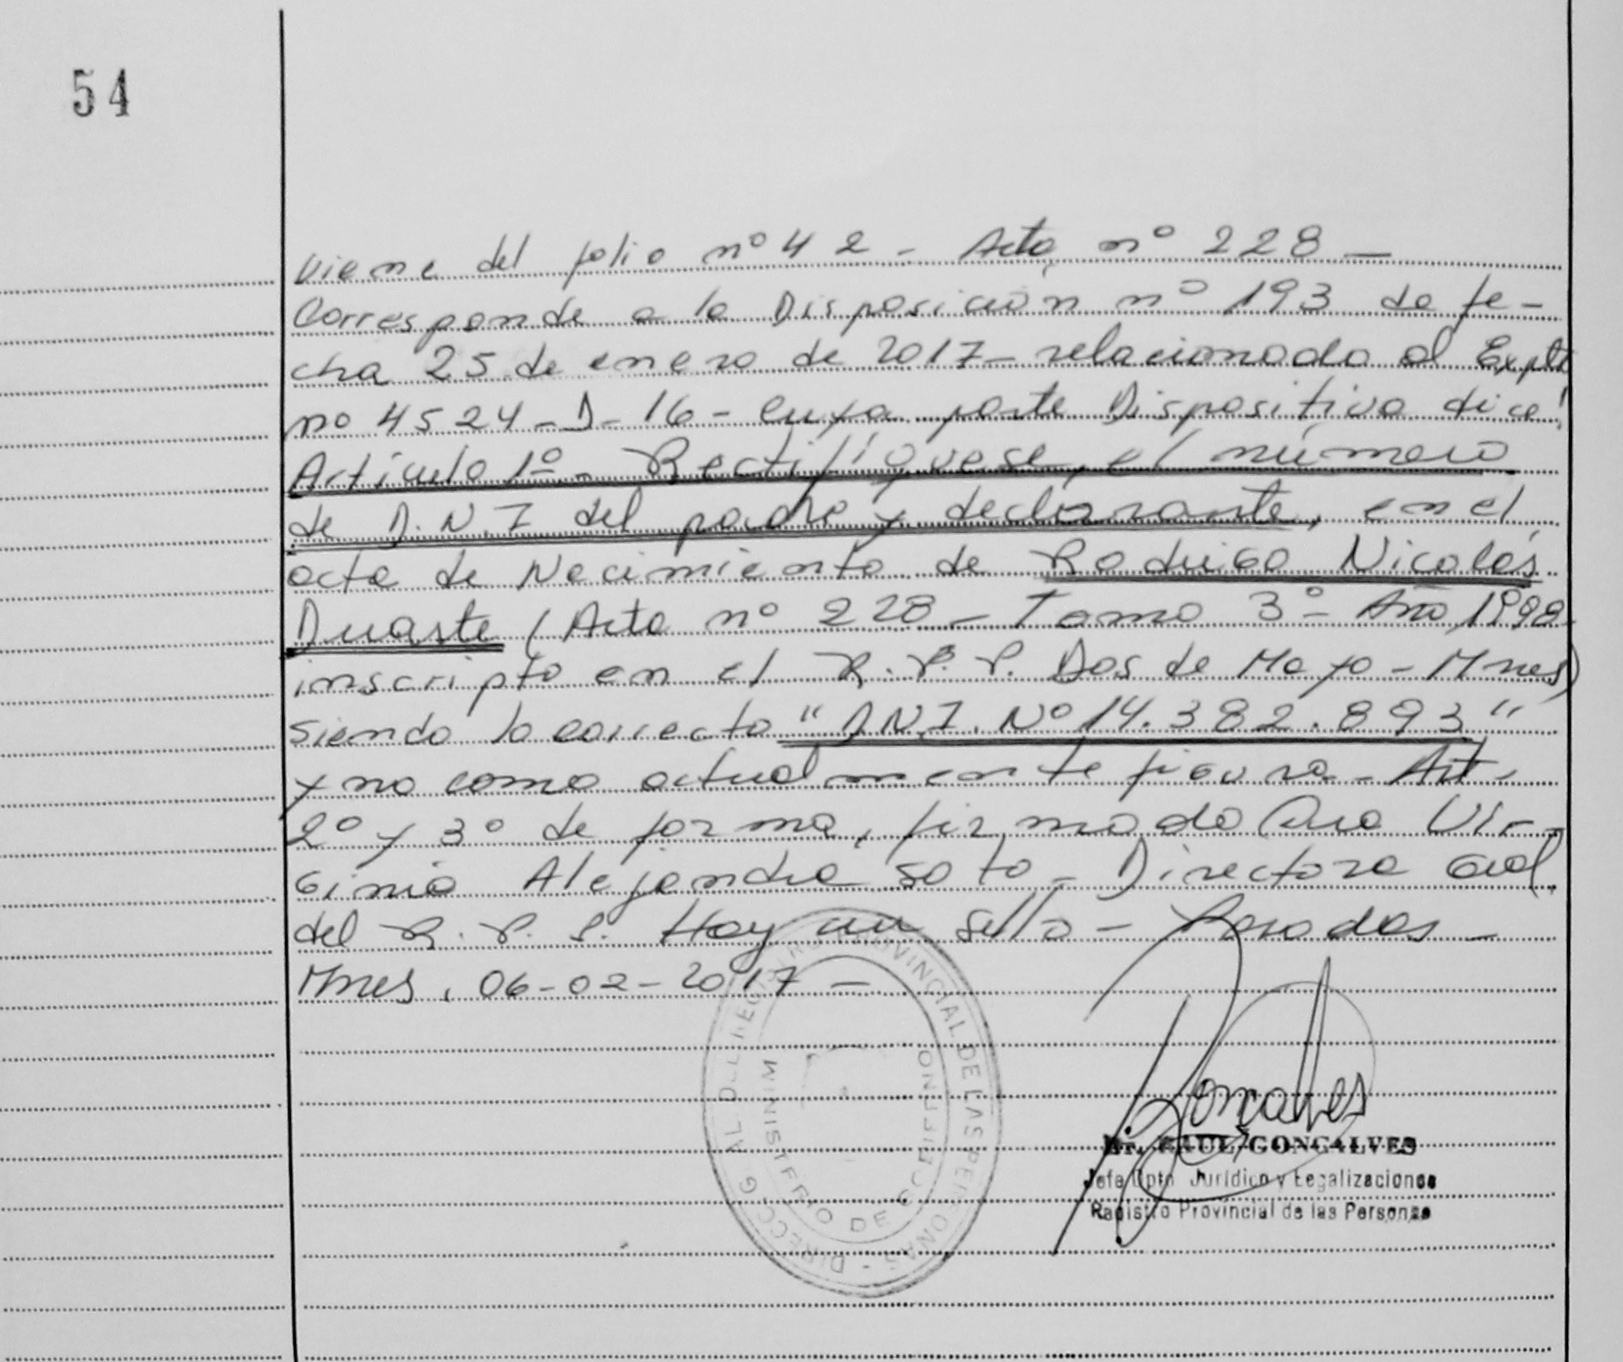 54
Viene del folio nº 42 - Acta nº 228 -
Corresponde a la Disposición nº 193 de fe-
cha 25 de enero de 2017 - relacionado al Expte
nº 4524 - D - 16 - cuya parte Dispositiva dice:
Artículo 1º - Rectifíquese, el número
de D.N.I del padre y declarante, en el
acta de Nacimiento de Rodrigo Nicolás
Duarte (Acta nº 228 - Tomo 3º - Año 1998
inscripto en el R.P.P. Dos de Mayo - Mnes)
siendo lo correcto "D.N.I. Nº 14.382.893"
y no como actualmente figura - Art.
2º y 3º de forma, firmado Dra Vir-
ginia Alejandra Soto - Directora Gral
del R.P.P. Hay un sello - Posadas -
Mnes, 06-02-2017 -
DIRECC. G AL DEL REGISTRO PROVINCIAL DE LAS PERSONAS -
MINISTERIO DE GOBIERNO
Goncalves
Dr. RAUL GONCALVES
Jefe Dpto. Jurídico y Legalizaciones
Registro Provincial de las Personas